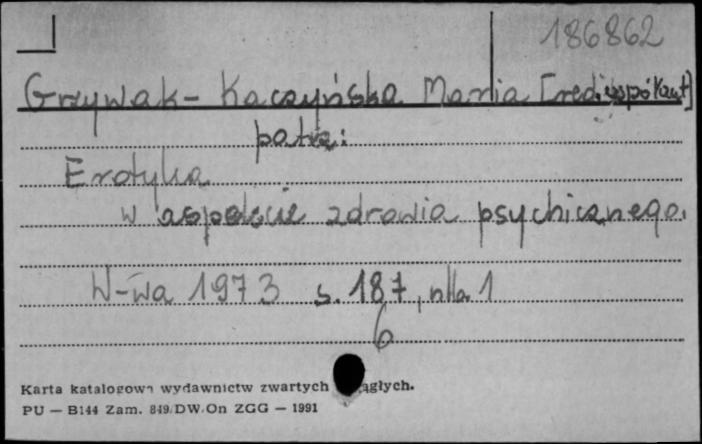 186862
Grzywak-Kaczyńska Maria [red. współaut]
patrz:
Erotyka
w aspekcie zdrowia psychicznego.
W-wa 1973 s. 187, nlb. 1
6
Karta katalogowa wydawnictw zwartych ągłych.
PU — B144 Zam. 849/DW.On ZGG — 1991